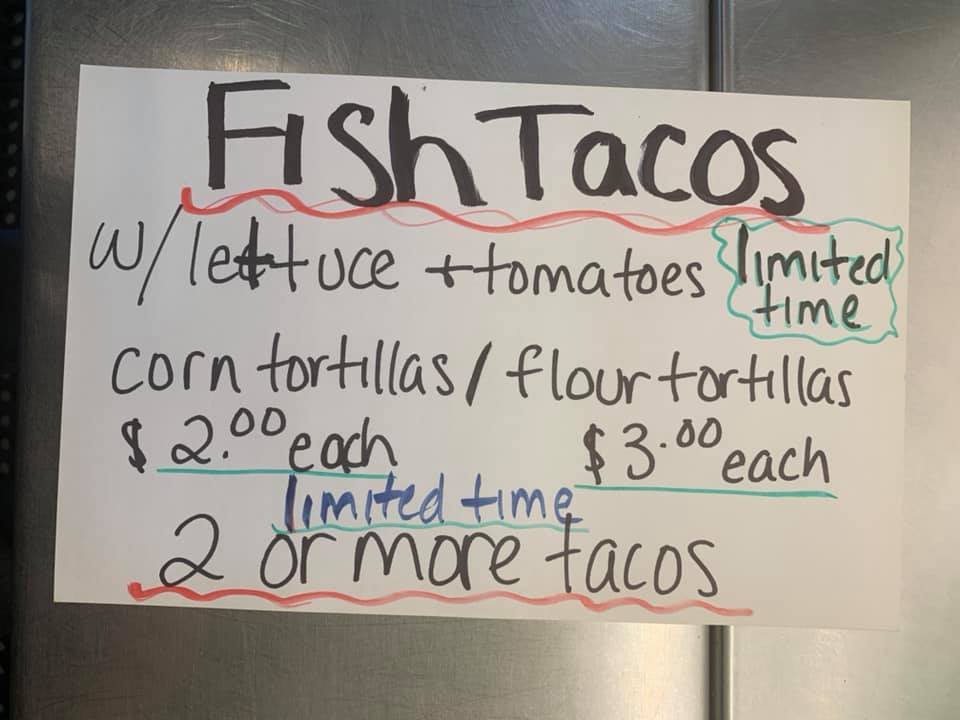 Fish Tacos
w/lettuce + tomatoes limited time
corn tortillas / flour tortillas
$2.00 each $3.00 each
limited time
2 or more tacos